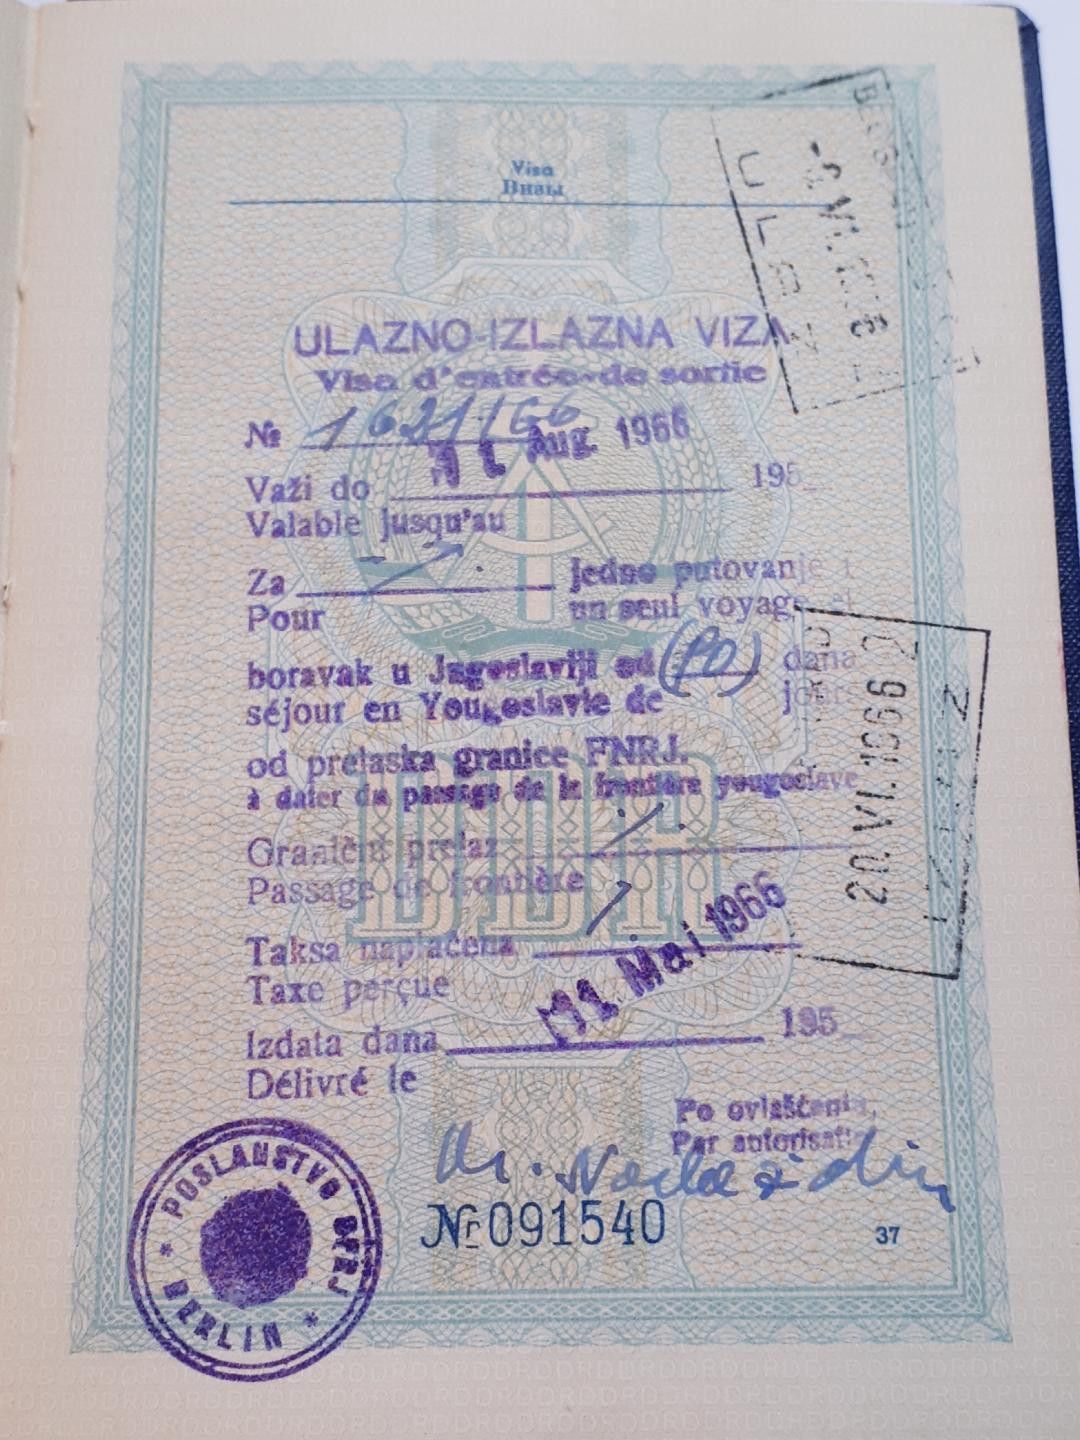 Visa
Визы
ULAZNO-IZLAZNA VIZA
Visa d'entrée-de sortie
№ 1621/66
11 Aug. 1966
Važi do 195_
Valable jusqu'au
Za jedno putovanje i
Pour un seul voyage et
boravak u Jugoslaviji od dana
séjour en Yougoslavie de jours
od prelaska granice FNRJ.
à dater du passage de la frontière yougoslave
Granični prelaz
Passage de frontière
Taksa naplaćena
Taxe perçue
11. Mai 1966
Izdata dana 195_
Délivré le
Po ovlašćenju,
Par autorisation
Nr 091540
37
POSLANSTVO FNRJ
* BERLIN *
ULAZ
20.VI.1966
IZLAZ
DDR